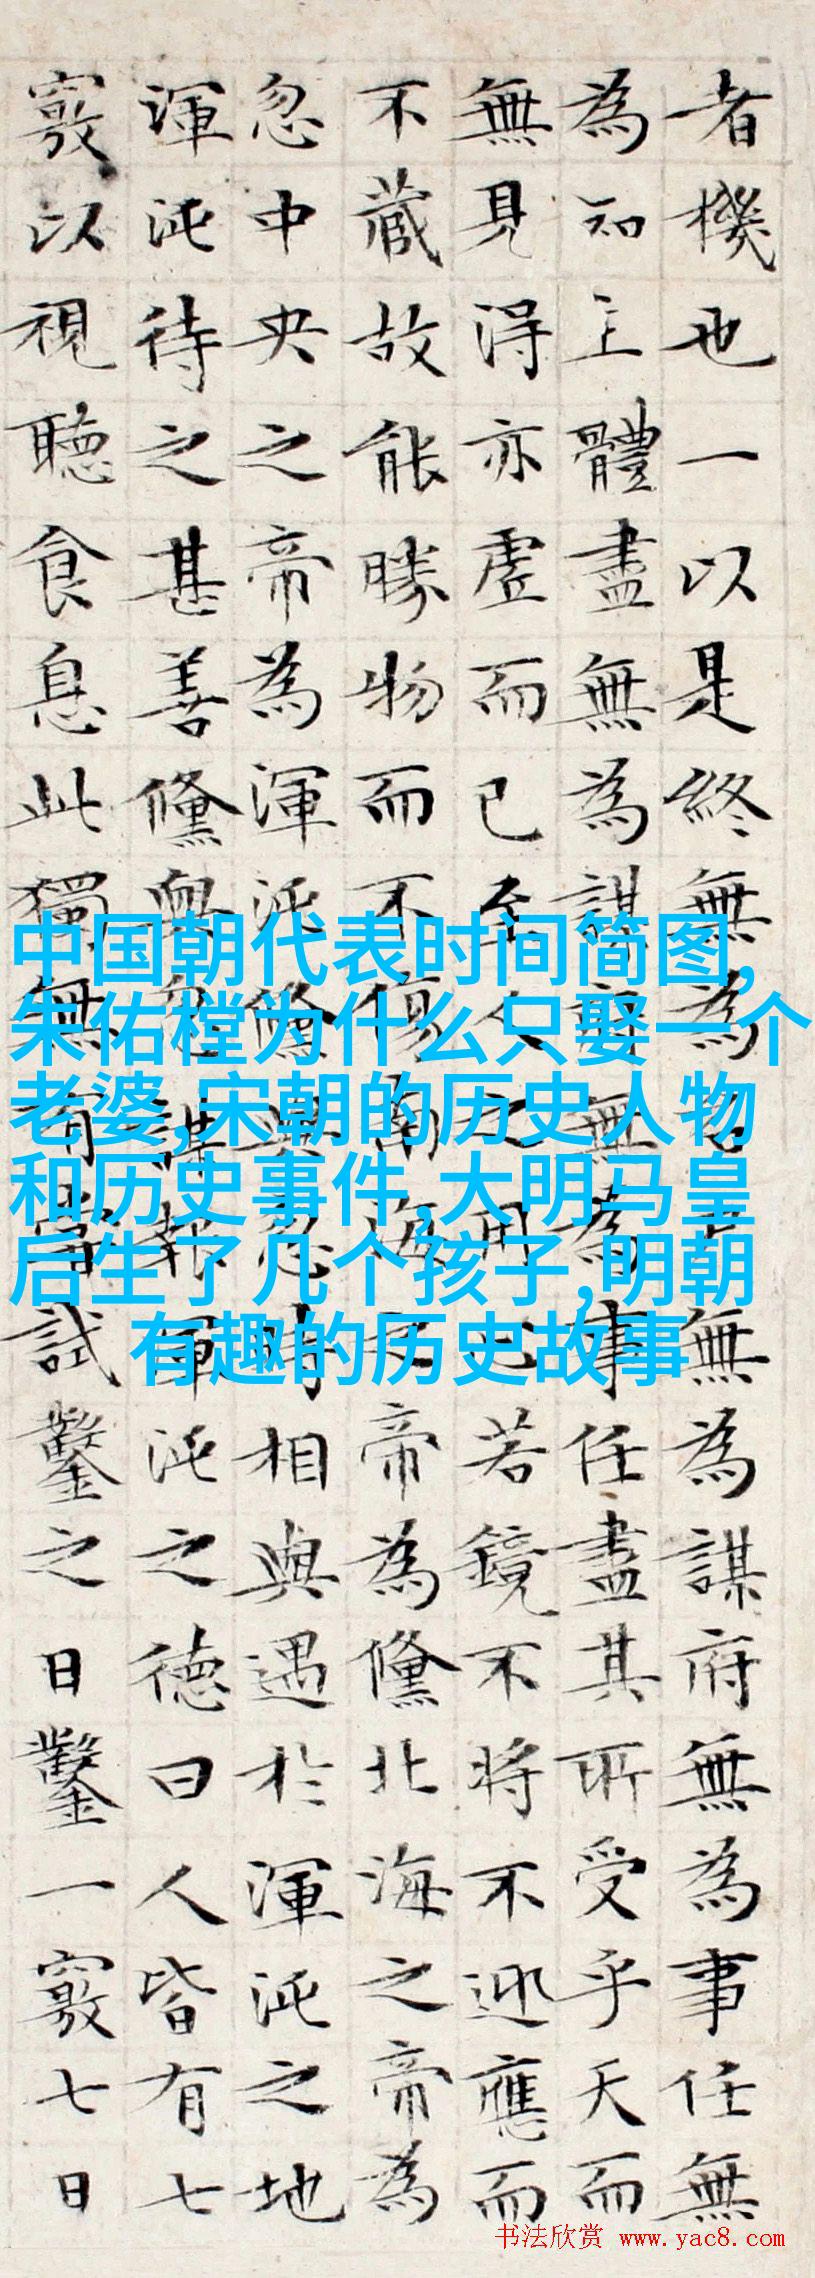 者機也一以是終無為名尸無為謀府無為事任無
為知主體盡無為謀府無為事任盡其所受乎天而
無見得亦虛而已至人之用心若鏡不將不迎應而
不藏故能勝物而不傷南海之帝為儵北海之帝為
忽中央之帝為渾沌儵與忽時相與遇於渾沌之地
渾沌待之甚善儵與忽謀報渾沌之德曰人皆有七
竅以視聽食息此獨無有嘗試鑿之日鑿一竅七日
中国朝代表时间简图,
朱佑樘为什么只娶一个
老婆,宋朝的历史人物
和历史事件,大明马皇
后生了几个孩子,明朝
有趣的历史故事
书法欣赏 www.yac8.com